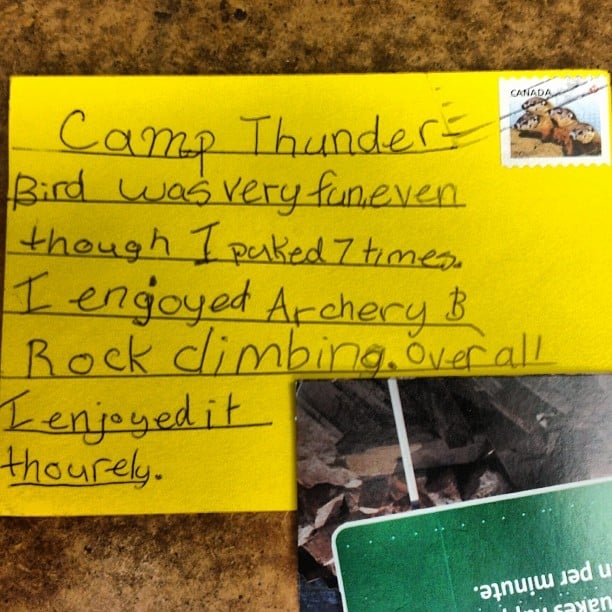 CANADA
Camp Thunder-
Bird was very fun, even
though I puked 7 times.
I enjoyed Archery B
Rock climbing. Over all
I enjoyed it
thourely.
n per minute.